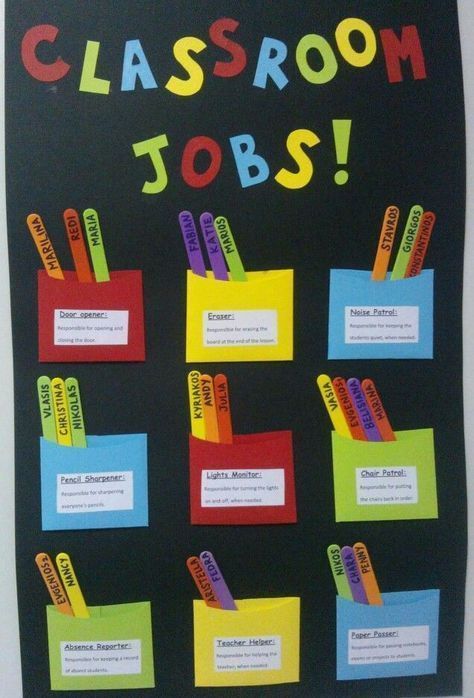 CLASSROOM
JOBS!
MARILINA
REDI
MARIA
FABIAN
KATIE
MARIOS
STAVROS
GIORGOS
KONSTANTINOS
Door opener:
Responsible for opening and
closing the door.
Eraser:
Responsible for erasing the
board at the end of the lesson.
Noise Patrol:
Responsible for keeping the
students quiet, when needed.
VLASIS
CHRISTINA
NIKOLAS
KYRIAKOS
ANDY
JULIA
VASIA
EVGENIOS
BESSIANA
MARINA
Pencil Sharpener:
Responsible for sharpening
everyone's pencils.
Lights Monitor:
Responsible for turning the lights
on and off, when needed.
Chair Patrol:
Responsible for putting
the chairs back in order.
EVGENIOS 2
NANCY
ARISTELLA
FEDRA
NIKOS
CHARA
PENNY
Absence Reporter:
Responsible for keeping a record
of absent students.
Teacher Helper:
Responsible for helping the
teacher, when needed.
Paper Passer:
Responsible for passing notebooks,
exams or projects to students.